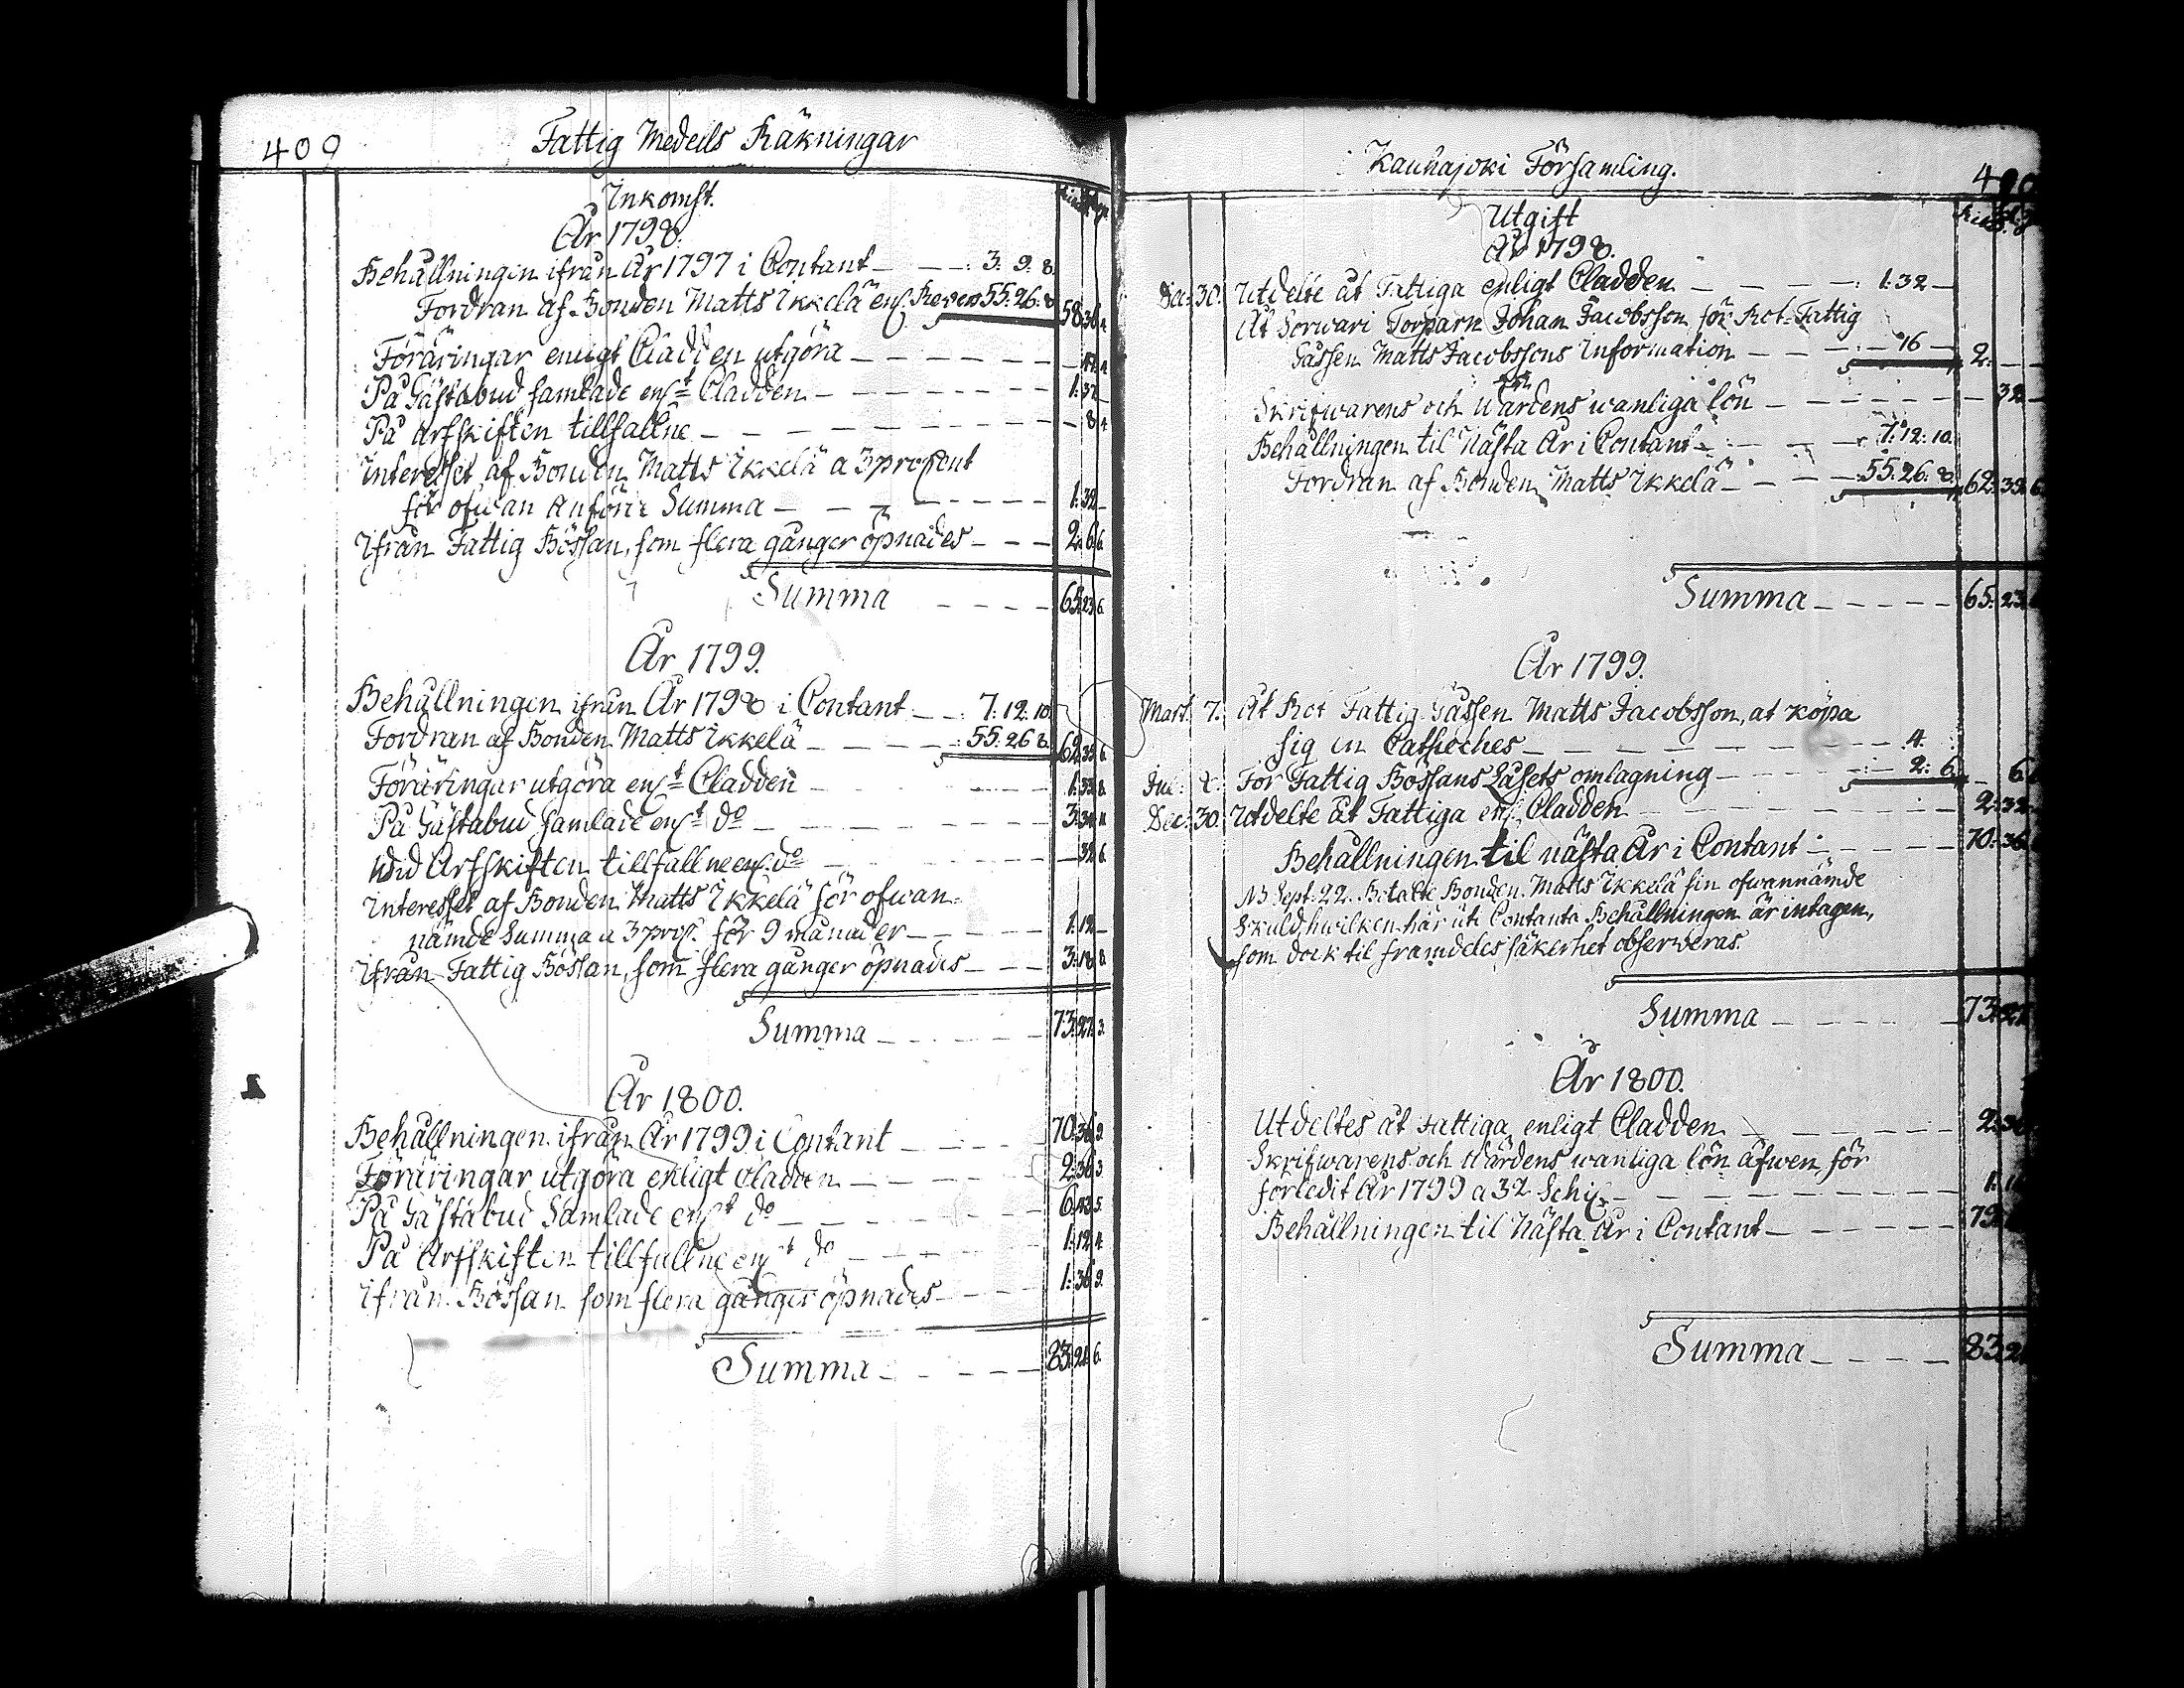 409 Fattig Medels Räkningar
Inkomst.
År 1798.
Behållningen ifrån År 1797 i Contant — — 3. 9. 8.
Fordran af Bonden Matts Ikkelä enl. Revers 55. 26. 8. 58. 36. 4.
Föräringar enligt Cladden utgöra — — — — —
På Gästabud samlade enlt Cladden — — — — 1. 32. —
På arfskiften tillfallne — — — — — — 8. 4.
Interesset af Bonden Matts Ikkelä a 3 procent
för ofwan anförde Summa — — — — — 1. 32. —
Ifrån Fattig Bössan, som flera gånger öpnades — — — 2. 6. 6.
Summa — — — — 65. 23. 6.
År 1799.
Behållningen ifrån År 1798 i Contant — — 7. 12. 10.
Fordran af Bonden Matts Ikkelä — — — — 55. 26. 8. 62. 39. 6.
Föräringar utgöra enlt Cladden — — — — 1. 8.
På Gästabud samlade enlt do — — — — 3.
wid Arfskiften tillfallne enl. do — — — — 6.
Interesset af Bonden Matts Ikkelä för ofwan-
nämde Summa a 3 proc. för 9 månader — — — — 1. 12. —
Ifrån Fattig Bössan, som flera gånger öpnades — — — 3. 18. 8.
Summa — — — — 73. 27. 3.
År 1800.
Behållningen ifrån År 1799 i Contant — — — — 70. 36. 9.
Föräringar utgöra enligt Cladden — — — — 2. 36. 3.
På Gästabud Samlade enlt do — — — — 6. 43. 5.
På Arfskiften tillfallne enlt do — — — — 1. 12. 4.
Ifrån Bössan som flera gånger öpnades — — — — 1. 36. 9.
Summa — — — — 83. 21. 6.
Kauhajoki Församling.
Utgift
År 1798.
Dec. 30. Utdelte åt Fattiga enligt Cladden — — — — 1. 32 —
Åt Sorwari Torparn Johan Jacobsson för Rot-Fattig
Gåssen Matts Jacobssons Information — — — — 16 — 2. — —
Skrifwarens och Wärdens wanliga lön — — — — — 32 —
Behållningen til Nästa År i Contant — — — 7. 12. 10.
Fordran af Bonden Matts Ikkelä — — — — 55. 26. 8. 62. 39. 6
Summa — — — — — 65. 23.
År 1799.
Mart. 7. Åt Rot Fattig Gåssen Matts Jacobsson, at köpa
sig en Catheches — — — — — — 4.
För Fattig Bössans Låsets omlagning — — — — 2. 6. — 6.
Dec. 30. Utdelte åt Fattiga enl. Cladden — — — — 2. 32.
Behållningen til nästa År i Contant — — — — 70. 36.
NB Sept. 22. Betalte Bonden Matts Ikkelä sin ofwannämde
Skuld, hwilken här uti Contanta Behållningen är intagen,
som dock til framdeles säkerhet observeras.
Summa — — — — 73. 27.
År 1800.
Utdeltes åt Fattiga enligt Cladden — — — — 2.
Skrifwarens och Wärdens wanliga lön äfwen för
förledit År 1799 a 32 Sch. — — — — — 1.
Behållningen til Nästa År i Contant — — — — 79.
Summa — — — — 83. 21